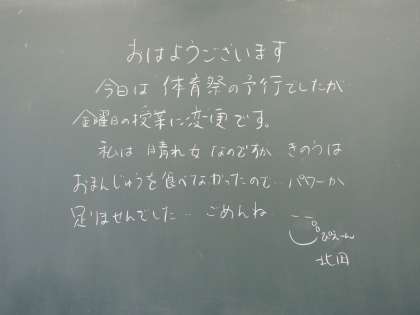 おはようございます
今日は 体育祭の予行でしたが
金曜日の授業に変更です。
私は 晴れ女 なのですが きのうは
おまんじゅうを食べてなかったので… パワーが
足りませんでした… ごめんね
ぴえーん
北田